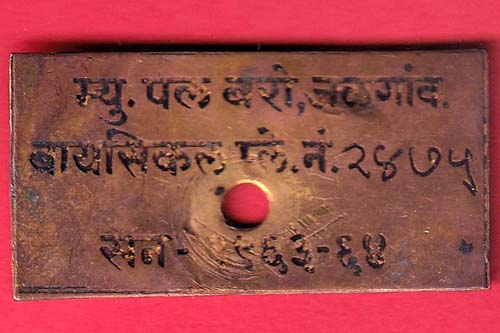 म्यु. पल बरो, जळगांव.
बायसिकल प्ले. नं. २४७५
सन- १९६३-६४